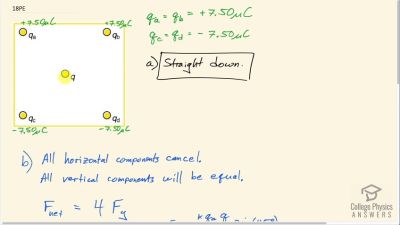 18PE
+7.50μC +7.50μC
qa qb
q
qc qd
-7.50μC -7.50μC
qa = qb = +7.50μC
qc = qd = -7.50μC
a) Straight down.
b) All horizontal components cancel.
All vertical components will be equal.
Fnet = 4 Fy
College Physics
ANSWERS